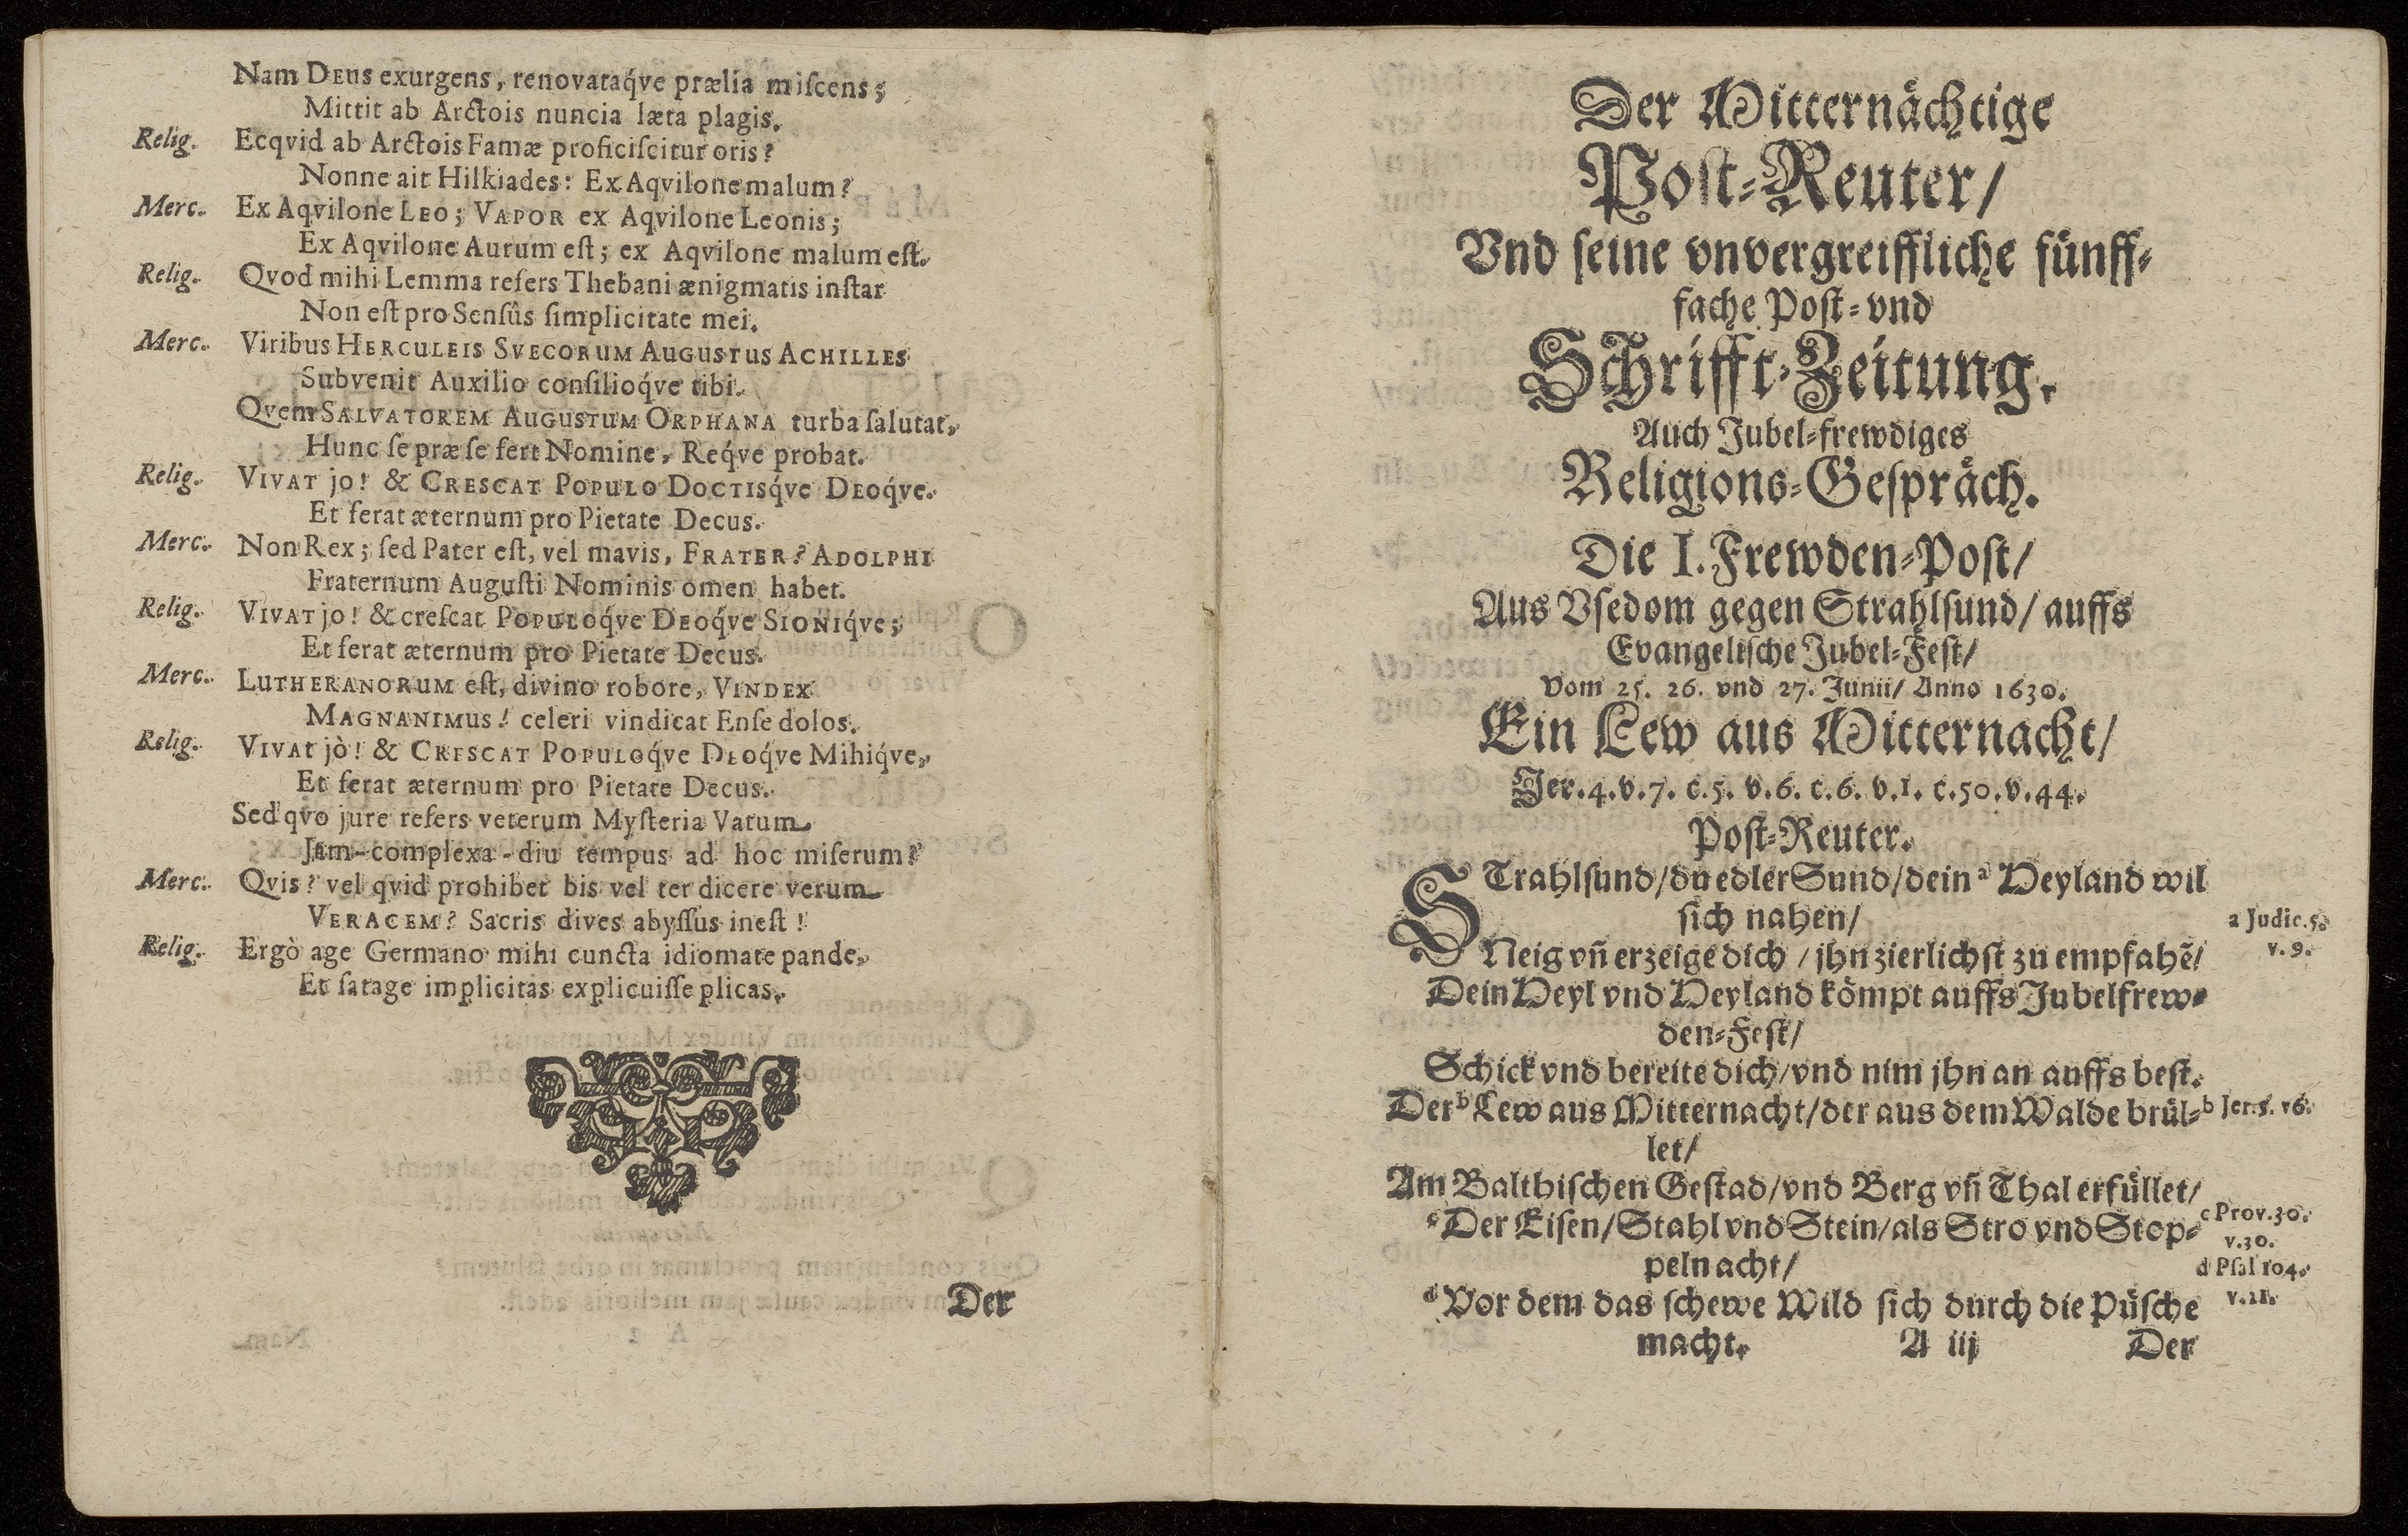 Nam DEUS exurgens, renovataq́ve prælia miſcens;
Mittit ab Arctois nuncia læta plagis.
Relig. Ecqvid ab Arctois Famæ proficiſcitur oris?
Nonne ait Hilkiades: Ex Aqvilone malum?
Merc. Ex Aqvilone LEO; VAPOR ex Aqvilone Leonis;
Ex Aqvilone Aurum eſt; ex Aqvilone malum eſt.
Relig. Qvod mihi Lemma refers Thebani ænigmatis inſtar
Non eſt pro Senſûs ſimplicitate mei.
Merc. Viribus HERCULEIS SVECORUM AUGUSTUS ACHILLES
Subvenit Auxilio conſilioq́ve tibi.
Qvem SALVATOREM AUGUSTUM ORPHANA turba ſalutat,
Hunc ſe præ ſe fert Nomine, Req́ve probat.
Relig. VIVAT jo! & CRESCAT POPULO DOCTISq́ve DEOq́ve.
Et ferat æternum pro Pietate Decus.
Merc. Non Rex; ſed Pater eſt, vel mavis, FRATER? ADOLPHI
Fraternum Auguſti Nominis omen habet.
Relig. VIVAT jo! & creſcat POPULOq́ve DEOq́ve SIONIq́ve;
Et ferat æternum pro Pietate Decus.
Merc. LUTHERANORUM eſt, divino robore, VINDEX
MAGNANIMUS! celeri vindicat Enſe dolos.
Relig. VIVAT jò! & CRESCAT POPULOq́ve DEOq́ve Mihiq́ve,
Et ferat æternum pro Pietate Decus.
Sed qvo jure refers veterum Myſteria Vatum
Jam-complexa-diu tempus ad hoc miſerum?
Merc. Qvis? vel qvid prohibet bis vel ter dicere verum
VERACEM? Sacris dives abyſſus ineſt!
Relig. Ergò age Germano mihi cuncta idiomate pande,
Et ſatage implicitas explicuiſſe plicas.
Der
Der Mitternåchtige
Poſt-Reuter/
Vnd ſeine vnvergreiffliche fünff-
fache Poſt- vnd
Schrifft-Zeitung.
Auch Jubel-frewdiges
Religions-Geſpråch.
Die I. Frewden-Poſt/
Aus Vſedom gegen Strahlſund/ auffs
Evangeliſche Jubel-Feſt/
Vom 25. 26. vnd 27. Junii/ Anno 1630.
Ein Lew aus Mitternacht/
Jer. 4. v. 7. c. 5. v. 6. c. 6. v. 1. c. 50. v. 44.
Poſt-Reuter.
STrahlſund/ du edler Sund/ dein a Heyland wil
ſich nahen/
a Judic. 5.
v. 9.
Neig vñ erzeige dich / jhn zierlichſt zu empfahẽ/
Dein Heyl vnd Heyland kömpt auffs Jubelfrew-
den-Feſt/
Schick vnd bereite dich/ vnd nim jhn an auffs beſt.
Der b Lew aus Mitternacht/ der aus dem Walde brül-
b Jer. 5. v 6.
let/
Am Balthiſchen Geſtad/ vnd Berg vñ Thal erfüllet/
c Der Eiſen/ Stahl vnd Stein/ als Stro vnd Stop-
c Prov. 30.
v. 30.
peln acht/
d Pſal 104.
v. 21.
d Vor dem das ſchewe Wild ſich durch die Püſche
macht.
A iij
Der